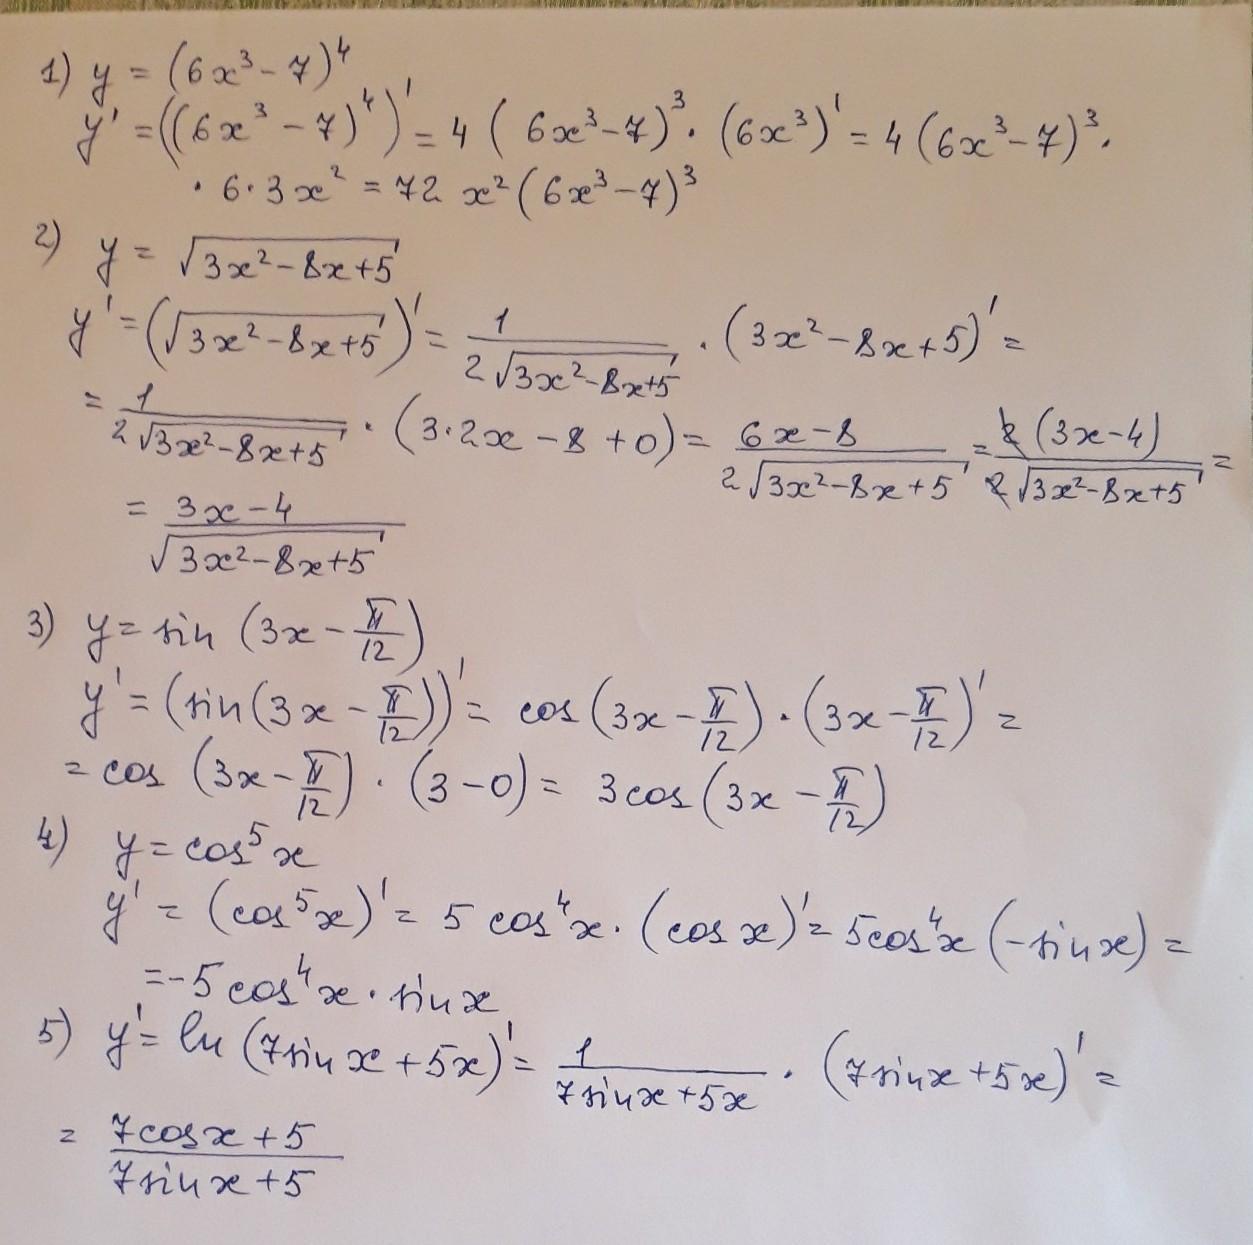 1) y = (6x³ - 7)⁴
y' = ((6x³ - 7)⁴)' = 4 (6x³ - 7)³ · (6x³)' = 4 (6x³ - 7)³ ·
· 6 · 3x² = 72 x² (6x³ - 7)³
2) y = √(3x² - 8x + 5)
y' = (√(3x² - 8x + 5))' = 1/(2√(3x² - 8x + 5)) · (3x² - 8x + 5)' =
= 1/(2√(3x² - 8x + 5)) · (3 · 2x - 8 + 0) = (6x - 8)/(2√(3x² - 8x + 5)) = 2(3x - 4)/(2√(3x² - 8x + 5)) =
= (3x - 4)/√(3x² - 8x + 5)
3) y = sin (3x - π/12)
y' = (sin(3x - π/12))' = cos (3x - π/12) · (3x - π/12)' =
= cos (3x - π/12) · (3 - 0) = 3cos (3x - π/12)
4) y = cos⁵x
y' = (cos⁵x)' = 5 cos⁴x · (cos x)' = 5cos⁴x (-sin x) =
= -5cos⁴x · sin x
5) y' = ln (7sin x + 5x)' = 1/(7sin x + 5x) · (7sin x + 5x)' =
= (7cos x + 5)/(7sin x + 5)